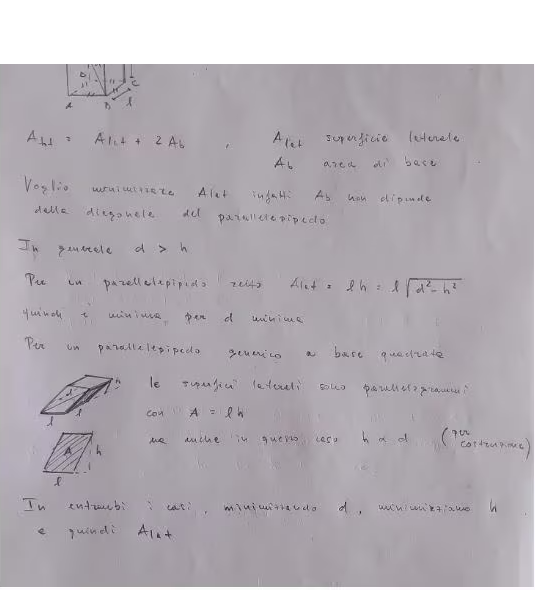 D
C
A B l
A tot = A lat + 2 Ab , A lat superficie laterale
Ab area di base
Voglio minimizzare A lat infatti Ab non dipende
dalla diagonale del parallelepipedo
In generale d > h
Per un parallelepipedo retto A lat = l h = l √(d² - h²)
quindi è minima per d minima
Per un parallelepipedo generico a base quadrata
d h
l l
le superfici laterali sono parallelogrammi
con A = l h
ma anche in questo caso h ∝ d (per costruzione)
A h
l
In entrambi i casi, minimizzando d, minimizziamo h
e quindi A lat